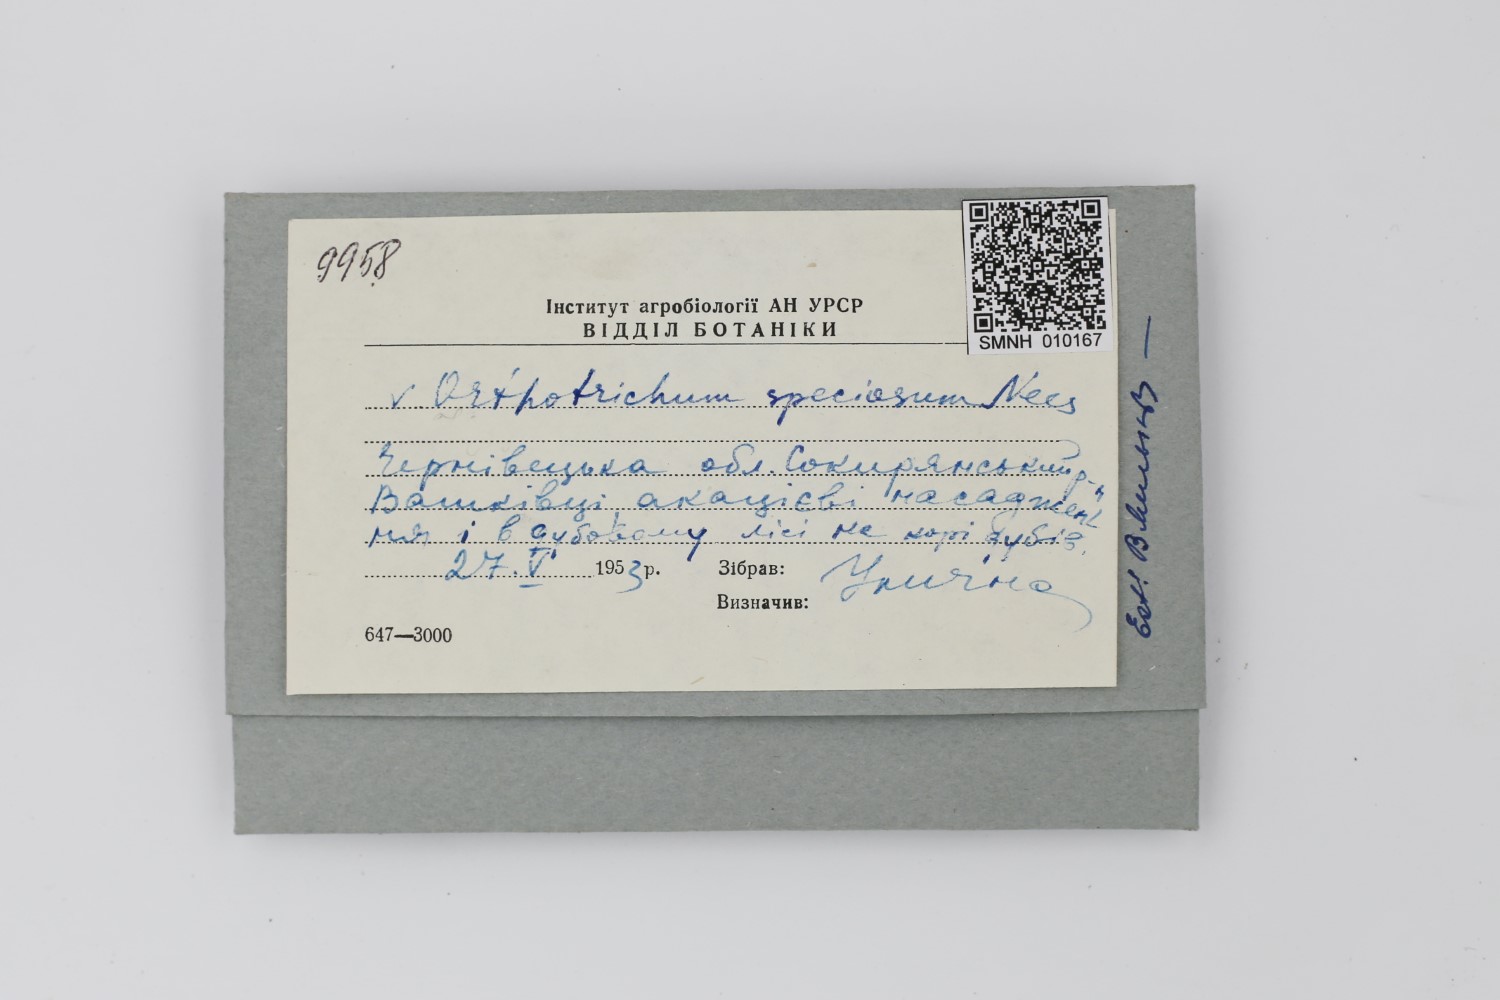 9958
Інститут агробіології АН УРСР
ВІДДІЛ БОТАНІКИ
SMNH 010167
v Orthotrichum speciosum Nees
Чернівецька обл. Сокирянський р-н
Вашківці, акацієві насаджен-
ня і в дубовому лісі на корі дубів.
27.V 1953 р. Зібрав: Улична
Визначив:
647—3000